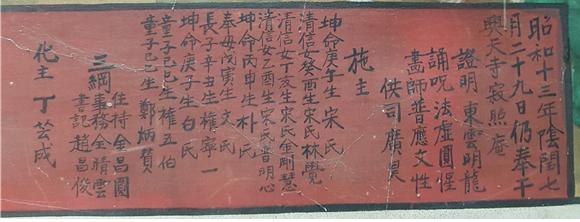 昭和十三年陰閏七
月二十九日仍奉于
興天寺寂照庵
證明 東雲明龍
誦呪法虛圓惺
畵師普應文性
供司廣昊
施主
坤命庚午生宋氏
清信士癸酉生宋氏林覺
清信女丁亥生宋氏金剛慧
清信女乙酉生宋氏普明心
坤命丙申生朴氏
奉母戊寅生文氏
長子辛丑生權寧一
坤命庚子生白氏
童子己巳生權五伯
童子己巳生鄭炳贊
三綱
住持金昌圓
事務金晴雲
書記趙昌俊
化主 丁芸成